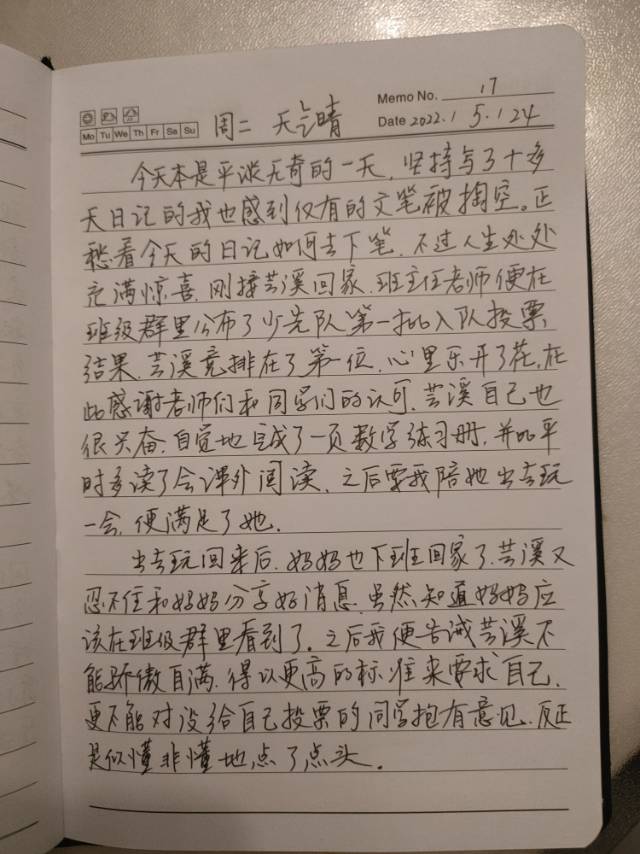 Memo No. 17
Mo Tu We Th Fr Sa Su 周二 天气晴 Date 2022.1 5.1 24
今天本是平淡无奇的一天，坚持写了十多
天日记的我也感到仅有的文笔被掏空。正
愁着今天的日记如何去下笔，不过人生处处
充满惊喜，刚接芸溪回家，班主任老师便在
班级群里公布了少先队第一批入队投票
结果，芸溪竟排在了第一位，心里乐开了花，在
此感谢老师们和同学们的认可，芸溪自己也
很兴奋，自觉地完成了一页数学练习册，并比平
时多读了会课外阅读，之后要我陪她出去玩
一会，便满足了她。
出去玩回来后，妈妈也下班回家了，芸溪又
忍不住和妈妈分享好消息，虽然知道妈妈应
该在班级群里看到了。之后我便告诫芸溪不
能骄傲自满，得以更高的标准来要求自己，
更不能对没给自己投票的同学抱有意见，反正
是似懂非懂地点了点头。